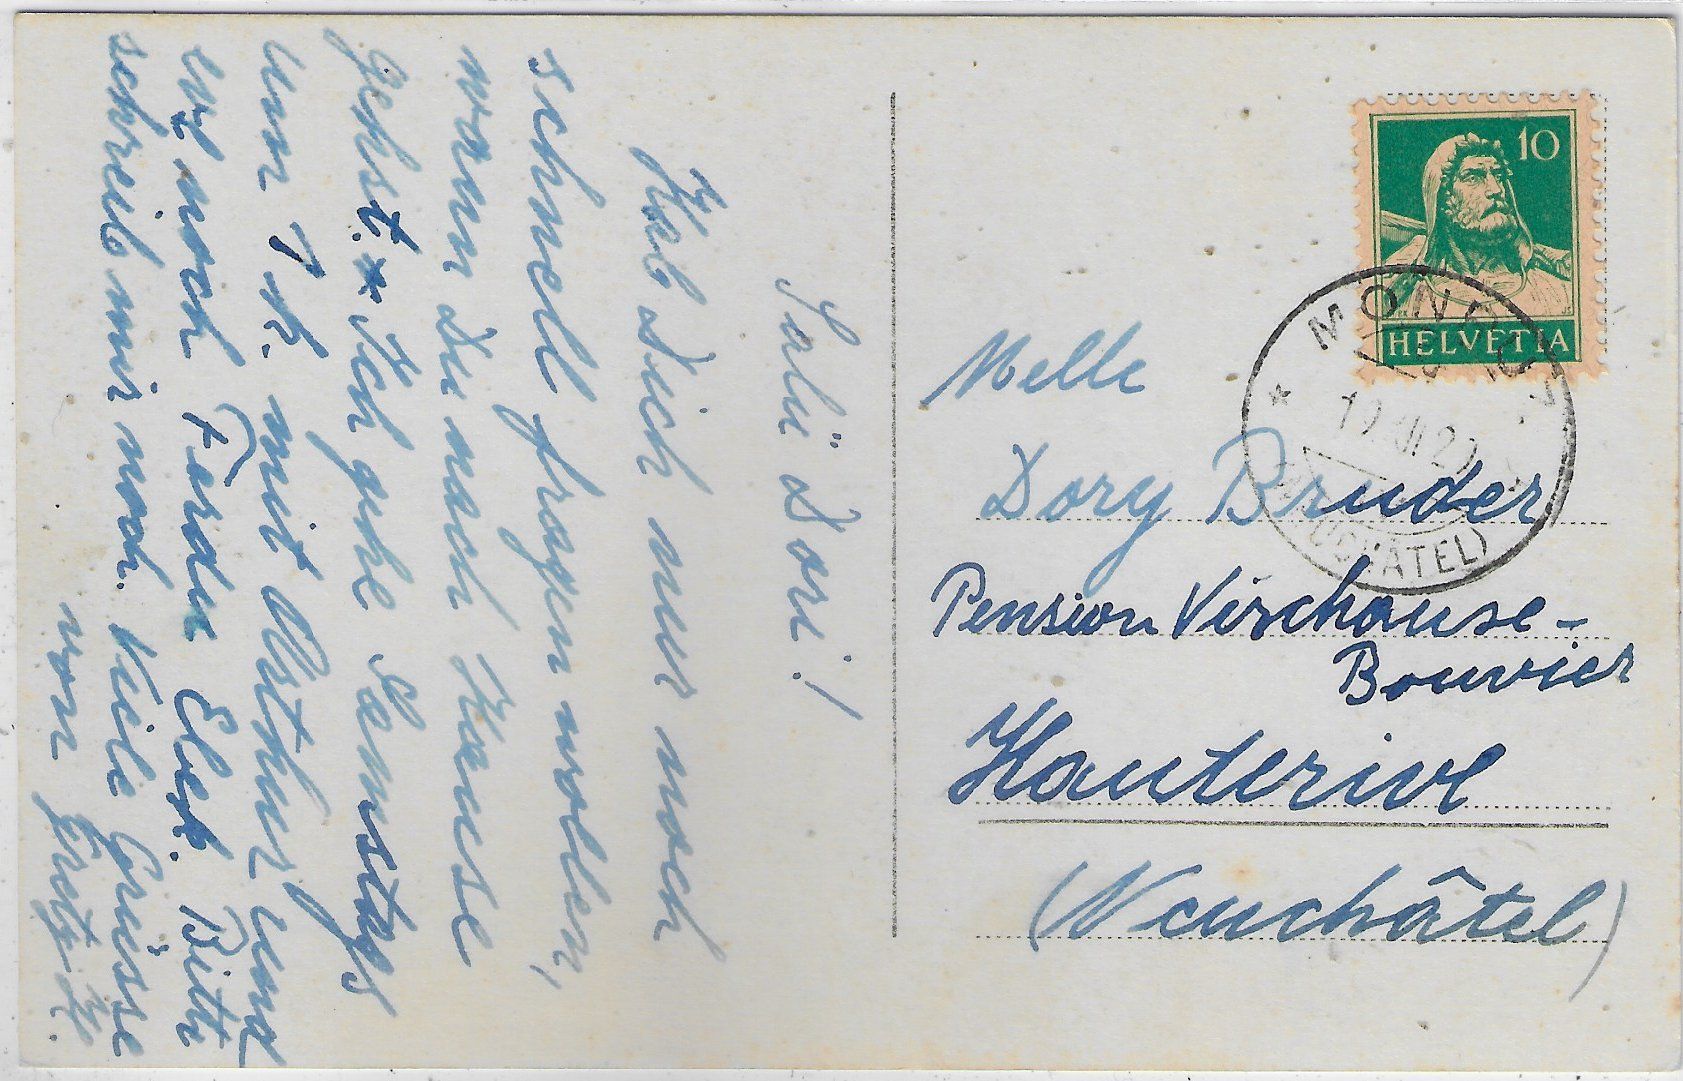 Salü Dori!
Hab Dich nur noch
schnell fragen wollen,
wann Du nach Hause
gehst.* Ich gehe Samstags
um 7 h. mit Arthur und
evt noch Ferdu Elsh. Bitte
schreib mir noch. Viele Grüsse
von Gretz H.
10
HELVETIA
MONRUZ
(NEUCHÂTEL)
Melle
Dory Bruder
Pension Virchause-
Bouvier
Hauterive
(Neuchâtel)